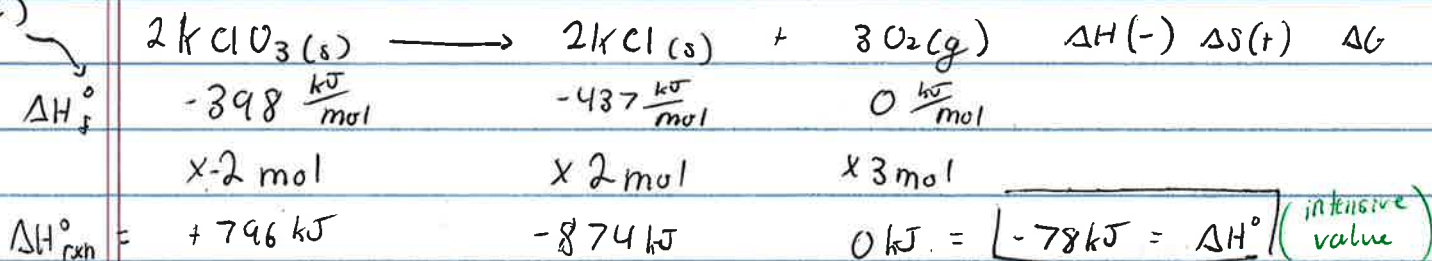 )
2KClO₃(s) ⟶ 2KCl(s) + 3O₂(g) ΔH(-) ΔS(+) ΔG
ΔH°f -398 kJ/mol -437 kJ/mol 0 kJ/mol
x-2 mol x 2 mol x 3 mol
ΔH°rxn = +796 kJ -874 kJ 0 kJ = -78 kJ = ΔH° (intensive value)